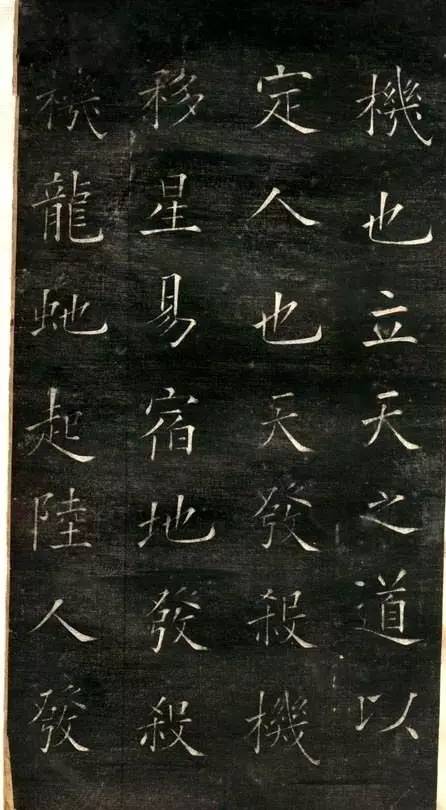 機也立天之道以
定人也天發殺機
移星易宿地發殺
機龍虵起陸人發